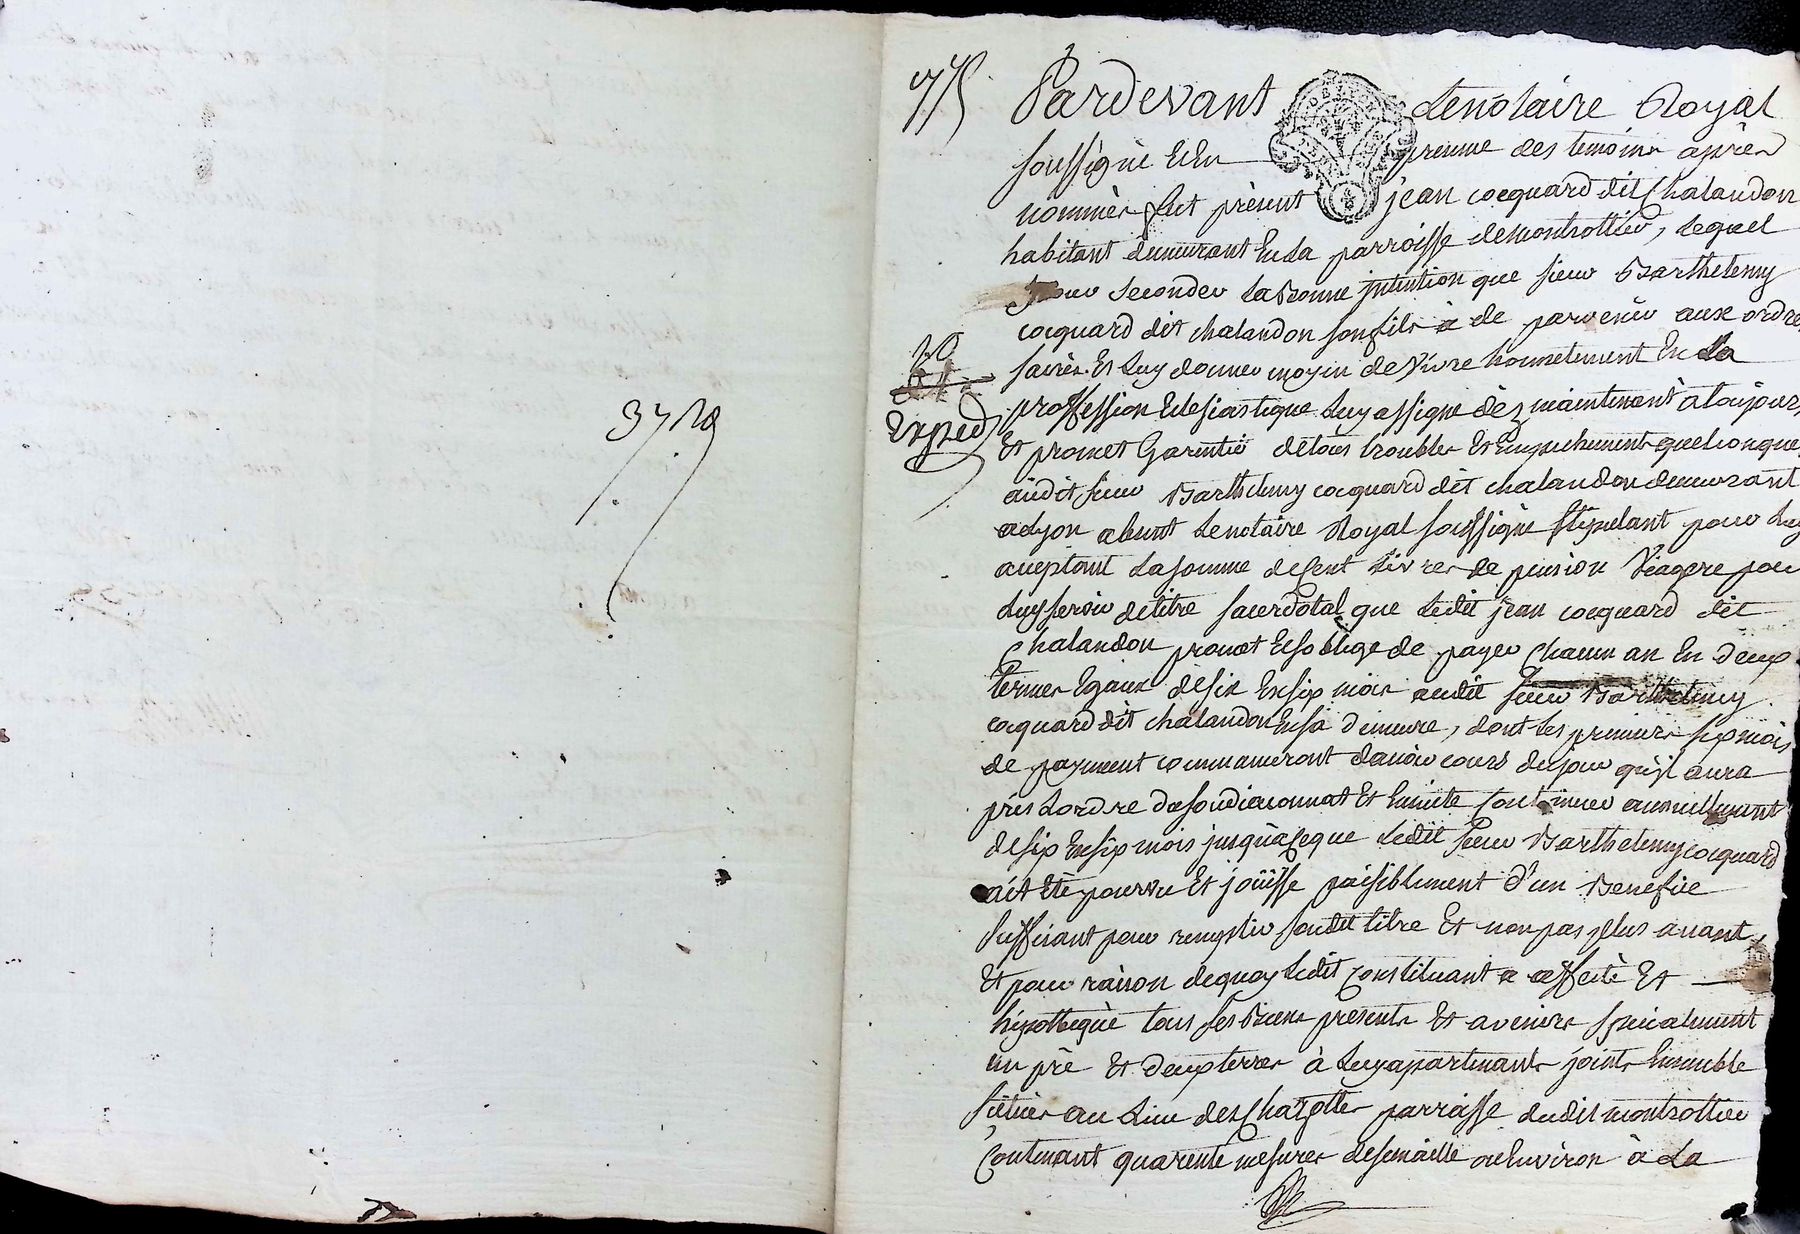 3718
775
Pardevant Lenotaire Royal
soussigné Et En presence des temoins aprés
nommés fut présent jean cocquard dit Chalandon
habitant demeurant En La parroisse de montrottier, Lequel
pour seconder La bonne jntention que sieur Barthelemy
cocquard dit chalandon son fils a de parvenir aux ordres
sacrés Et Luy donner moyen de Vivre honnetement En La
10
Exped
proffession Eclesiastique Luy assigne dès maintenant a toujours
Et promet Garentir de tous troubles Et Empechements quelconques
audit sieur Barthelemy cocquard dit chalandon demeurant
a Lyon absent Le notaire Royal soussigné stipulant pour Luy
aceptant La somme de Cent Livres de pension Viagere pour
Luy servir de titre sacerdotal que Ledit jean cocquard dit
Chalandon promet Et s'oblige de payer Chacun an En deux
termes Egaux de six En six mois audit sieur Barthelemy
cocquard dit chalandon En sa demeure, dont Les premiers six mois
de payment commanceront d'avoir cours du jour qu'jl aura
pris L'ordre de soudiaconnat Et Ensuite continuer annuellement
de six En six mois jusqu'a Ce que Ledit sieur Barthelemy cocquard
ait Eté pourvu Et joüisse paisiblement d'un Benefice
suffisant pour remplir sondit titre Et non pas plus avant,
Et pour raison de quoy Ledit Constituant a affecté Et
hipothequé tous ses Biens presents Et avenirs specialement
un pré Et deux terres à Luy apartenants joints Ensemble
situés au Lieu des Chazottes parroisse dudit montrottier
Contenant quarente mesures de semaille ou Environ à La